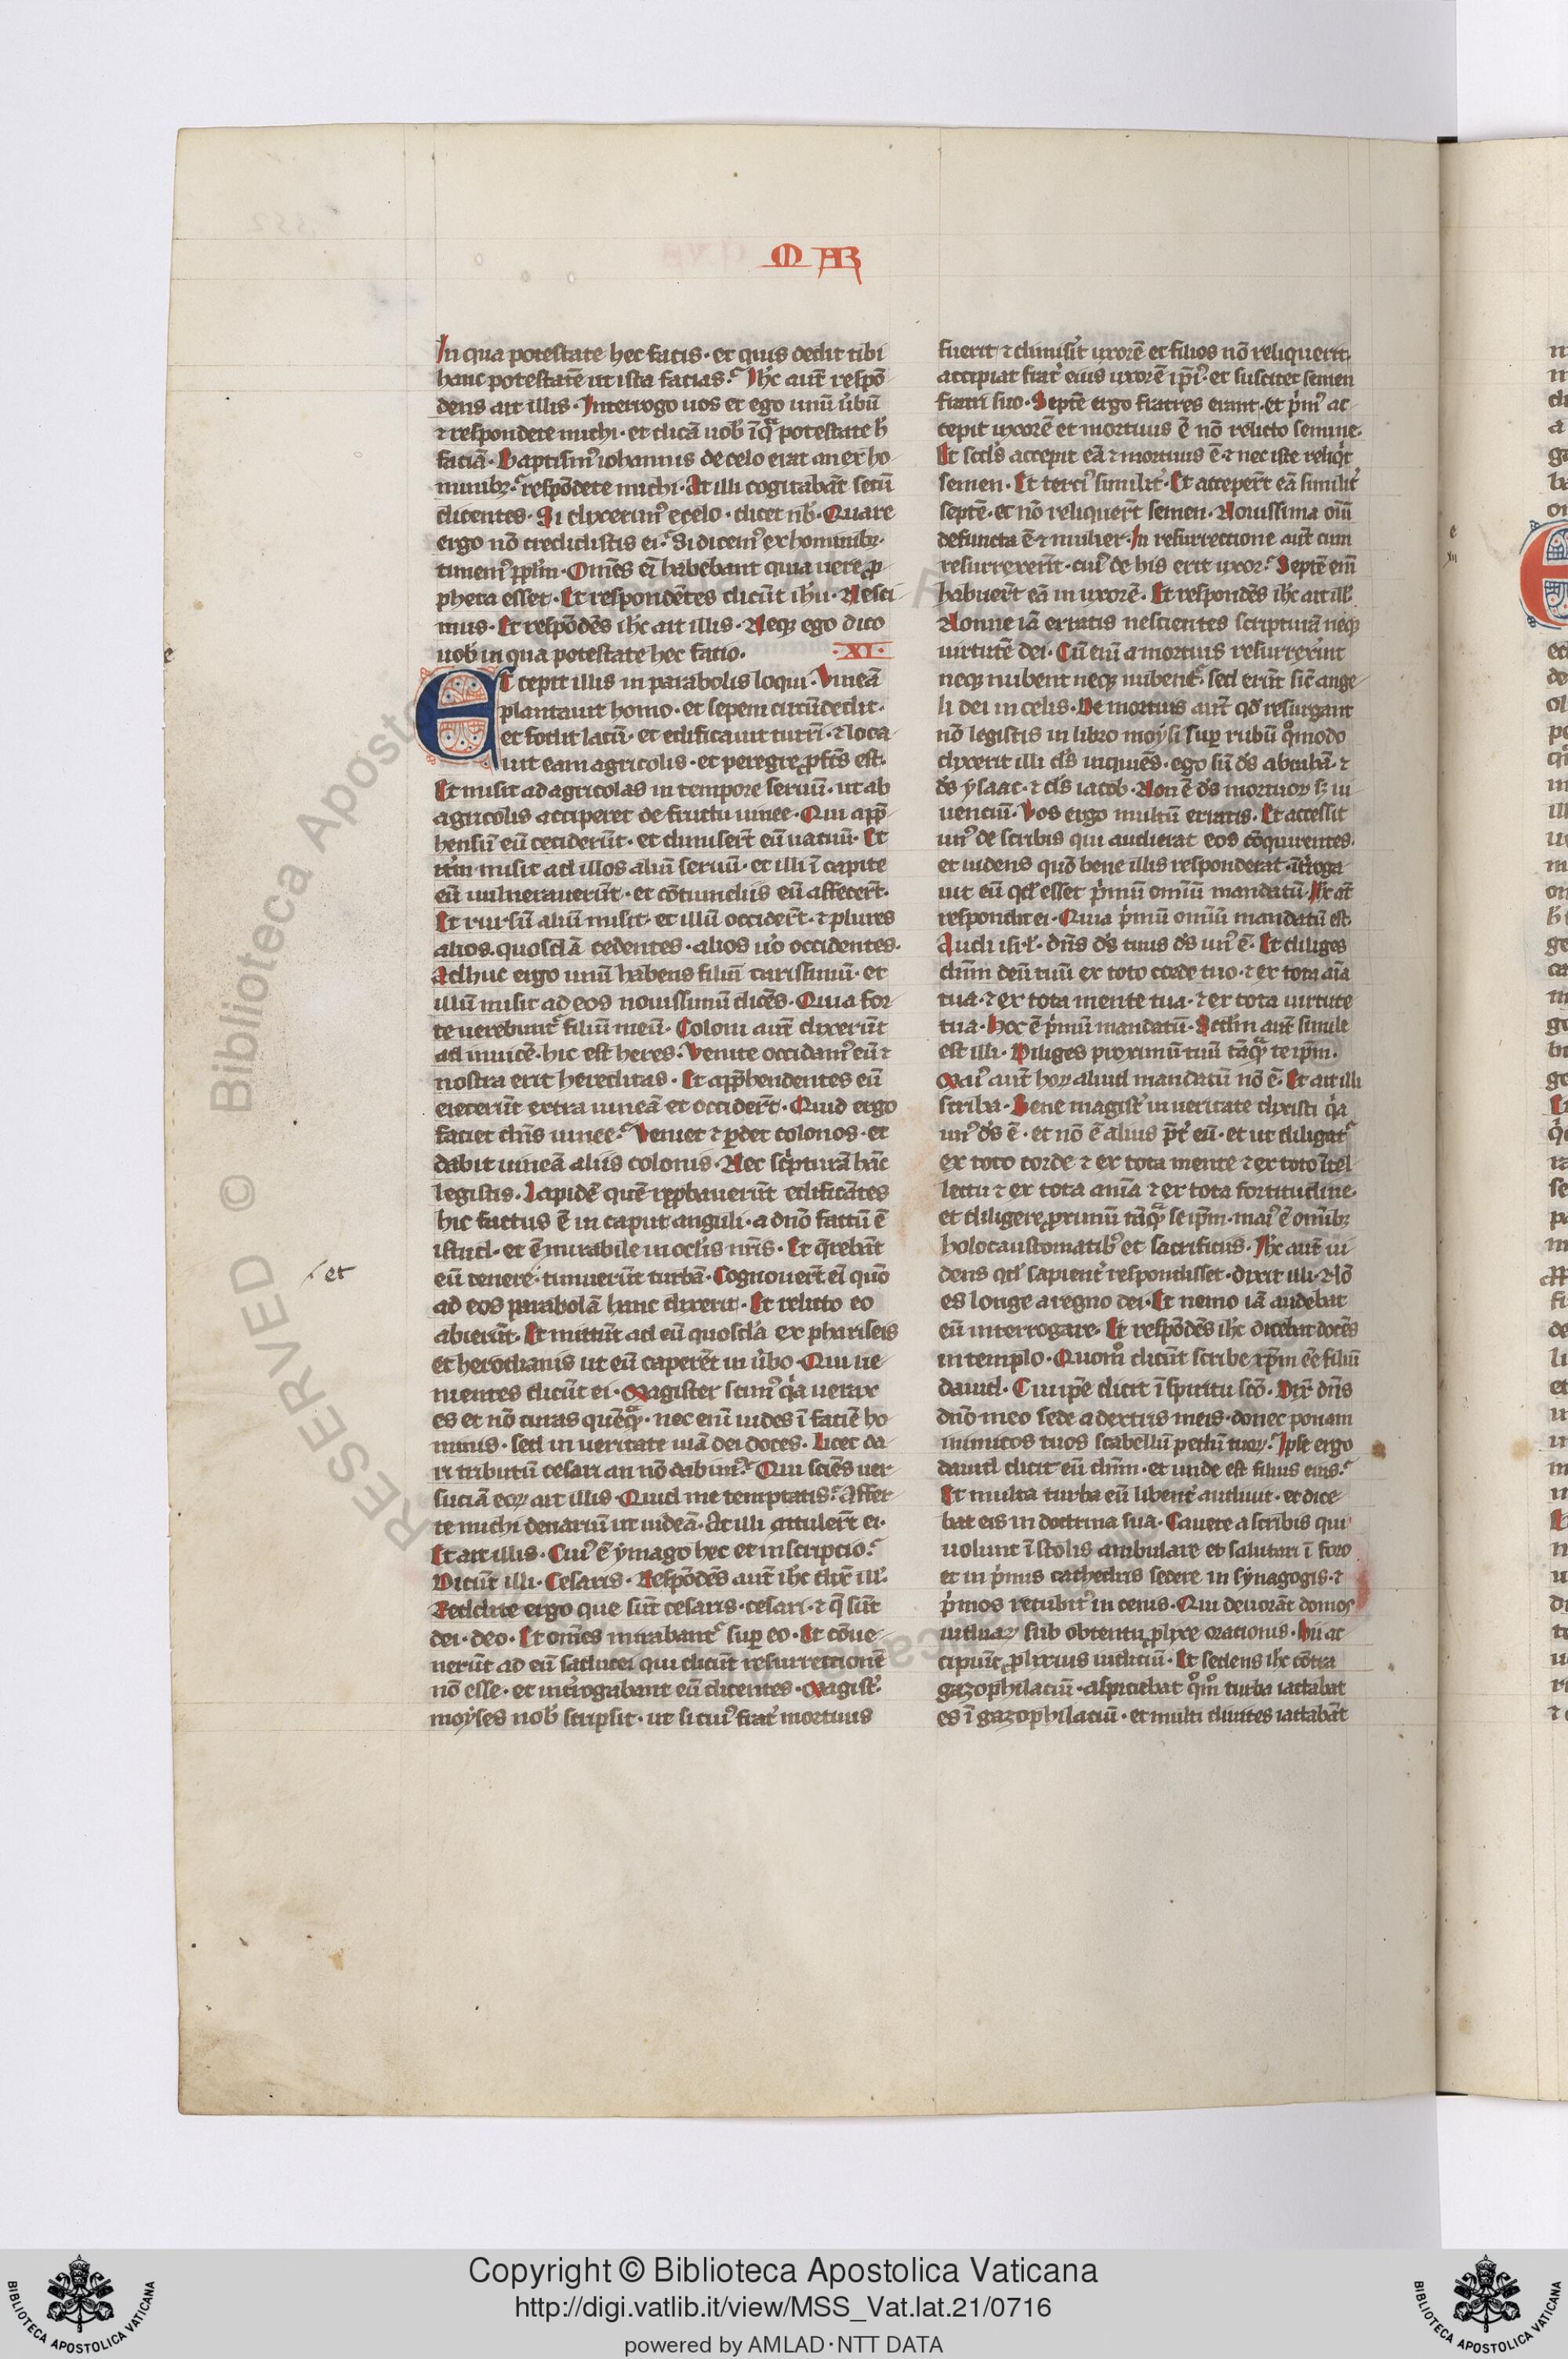 MAR
In qua potestate hec facis · et quis dedit tibi
hanc potestatē ut ista facias? Ih̄c aut̄ respō
dens ait illis · Interrogo uos et ego unū ůbū
⁊ respondete michi · et dicā uob̄ ī qͣ potestate h̄
faciā · Baptism᷒ iohannis de celo erat an ex ho
minibꝫ? respōdete michi · At illi cogitabāt secū
dicentes · Si dixerim᷒ e celo · dicet nb̄ · Quare
ergo nō credidistis ei? Si dicem᷒ ex hominibꝫ ·
timem᷒ ppl̄m · Om̄es ei᷒ habebant quia uere ꝓ
pheta esset · Et respondētes dicūt ih̄u · Nesci
mus · Et respōdēs ih̄c ait illis · Neqꝫ ego dico
uob̄ in qua potestate hec facio ·
· XI ·
Et cepit illis in parabolis loqui · Vineā
plantauit homo · et sepem circūdedit ·
et fodit lacū · et edificauit turrī · ⁊ loca
uit eam agricolis · et peregre ꝓfc̄s est ·
Et misit ad agricolas in tempore seruū · ut ab
agricolis acciperet de fructu uinee · Qui app̄
hensū eū ceciderūt · et dimiser̄t eū uacuū · Et
itm̄ misit ad illos aliū seruū · et illi ī capite
eū uulnerauerūt · et cōtumeliis eū affecer̄t ·
Et rursū aliū misit · et illū occider̄t · ⁊ plures
alios · quosdā cedentes · alios ůo occidentes ·
Adhuc ergo unū habens filiū carissimū · et
illū misit ad eos nouissimū dicēs · Quia for
te uerebunt᷒ filiū meū · Coloni aut̄ dixerūt
ad inuicē · hic est heres · Venite occidam᷒ eū ⁊
nostra erit hereditas · Et app̄hendentes eū
eiecerūt extra uineā et occider̄t · Quid ergo
faciet dn̄s uinee? Veniet ⁊ ꝑdet colonos · et
dabit uineā aliis colonis · Nec sc̓pturā hāc
legistis · Lapidē quē reꝓbauerūt edificātes
hic factus ē in caput anguli · a dn̄o factū ē
istud · et ē mirabile in ocl̓is nr̄is · Et q̄rebāt
eū tenere · timuerūt turbā · Cognouer̄t ei᷒ quō
ad eos parabolā hanc dixerit · Et relicto eo
abierūt · Et mittūt ad eū quosdā ex phariseis
et herodianis ut eū caperēt in ůbo · Qui ue
nientes dicūt ei · Magister scim᷒ qͥa uerax
es et nō curas quēqͣ · nec eni᷒ uides ī faciē ho
minis · sed in ueritate uiā dei doces · Licet da
ri tributū cesari an nō dabim᷒? Qui sciēs uer
suciā eoꝝ ait illis · Quid me temptatis? Affer
te michi denariū ut uideā · At illi attuler̄t ei ·
Et ait illis · Cui᷒ ē ymago hec et inscriptio?
Dicūt illi · Cesaris · Respōdēs aut̄ ih̄c dix̄ ill᷒ ·
Reddite ergo que sūt cesaris · cesari · ⁊ q̄ sūt
dei · deo · Et om̄es mirabant᷒ suꝑ eo · Et cōue
nerūt ad eū saducei qui dicūt resurrectionē
nō esse · et int̓rogabant eū dicentes · Magist̓
moyses nob̄ scripsit · ut si cui᷒ frat̓ mortuus
et
fuerit ⁊ dimisit̓ uxorē et filios nō reliquerit ·
accipiat frat̓ eius uxorē ip̄i᷒ · et suscitet semen
fratri suo · Septē ergo fratres erant · et pͥm᷒ ac
cepit uxorē et mortuus ē nō relicto semine ·
Et scd̄s accepit eā ⁊ mortuus ē · ⁊ nec iste reliqͥt
semen · Et terci᷒ similit̓ · Et acceper̄t eā similit̓
septē · et nō reliquer̄t semen · Nouissima oīm̄
defuncta ē ⁊ mulier · In resurrectione aut̄ cum
resurrexerīt · cui᷒ de his erit uxor? Septē em̄
habuer̄t eā in uxorē · Et respondēs ih̄c ait ill᷒
Nonne iā erratis nescientes scripturā neqꝫ
uirtutē dei · Cū eni᷒ a mortuis resurrexīnt
neqꝫ nubent neqꝫ nubent᷒ · sed erūt sic̄ ange
li dei in celis · De mortuis aut̄ qd̄ resurgant
nō legistis in libro moysi suꝑ rubū qͦmodo
dixerit illi ds̄ inquiēs · ego sū ds̄ abrahā · ⁊
ds̄ ysaac · ⁊ ds̄ iacob · Non ē ds̄ mortuoꝝ sꝫ ui
uenciū · Vos ergo multū erratis · Et accessit
un᷒ de scribis qui audierat eos cōquirentes ·
et uidens quō bene illis responderat · īt̓roga
uit eū qd̄ esset pͥmū omīū mandatū · Ih̄c at̄
respondit ei · Quia pͥmū omīū mandatū est ·
Audi isr̄l · dn̄s ds̄ tuus ds̄ un᷒ ē · Et diliges
dn̄m deū tuū ex toto corde tuo · ⁊ ex tota aīa
tua · ⁊ ex tota mente tua · ⁊ ex tota uirtute
tua · Hoc ē pͥmū mandatū · Scd̄m aut̄ simile
est illi · Diliges proximū tuū tāqͣ te ip̄m ·
Mai᷒ aut̄ hoꝝ aliud mandatū nō ē · Et ait illi
scriba · Bene magist̓ in ueritate dixisti qͥa
un᷒ ds̄ ē · et nō ē alius p̄t̓ eū · et ut diligat᷒
ex toto corde ⁊ ex tota mente ⁊ ex toto ītel
lectu ⁊ ex tota anīa ⁊ ex tota fortitudine ·
et diligere ꝓximū tāqͣ se ip̄m · mai᷒ ē omībꝫ
holocaustomatib᷒ et sacrificiis · Ih̄c aut̄ ui
dens qd̄ sapient̓ respondisset · dixit illi · Nō
es longe a regno dei · Et nemo iā audebat
eū interrogare · Et respōdēs ih̄c dicebat docēs
in templo · Quomͦ dicūt scribe xp̄m eē filiū
dauid · Cui ip̄e dicit ī spiritu scō · Dix̄ dn̄s
dn̄o meo sede a dextris meis · donec ponam
inimicos tuos scabellū pedū tuoꝝ? Ipse ergo
dauid dicit eū dn̄m · et unde est filius eius?
Et multa turba eū libent̓ audiuit · et dice
bat eis in doctrina sua · Cauete a scribis qui
uolunt ī stolis ambulare et salutari ī foro
et in pͥmis cathedris sedere in synagogis · ⁊
pͥmos recubit᷒ in cenis · Qui deuorāt domos
uiduaꝝ sub obtentu ꝓlixe orationis · Hii ac
cipiūt ꝓlixius iudiciū · Et sedens ih̄c cōtra
gazophilaciū · aspiciebat qͦmͦ turba iactabat
es ī gazophilaciū · et multi diuites iactabāt
Copyright © Biblioteca Apostolica Vaticana
http://digi.vatlib.it/view/MSS_Vat.lat.21/0716
powered by AMLAD·NTT DATA